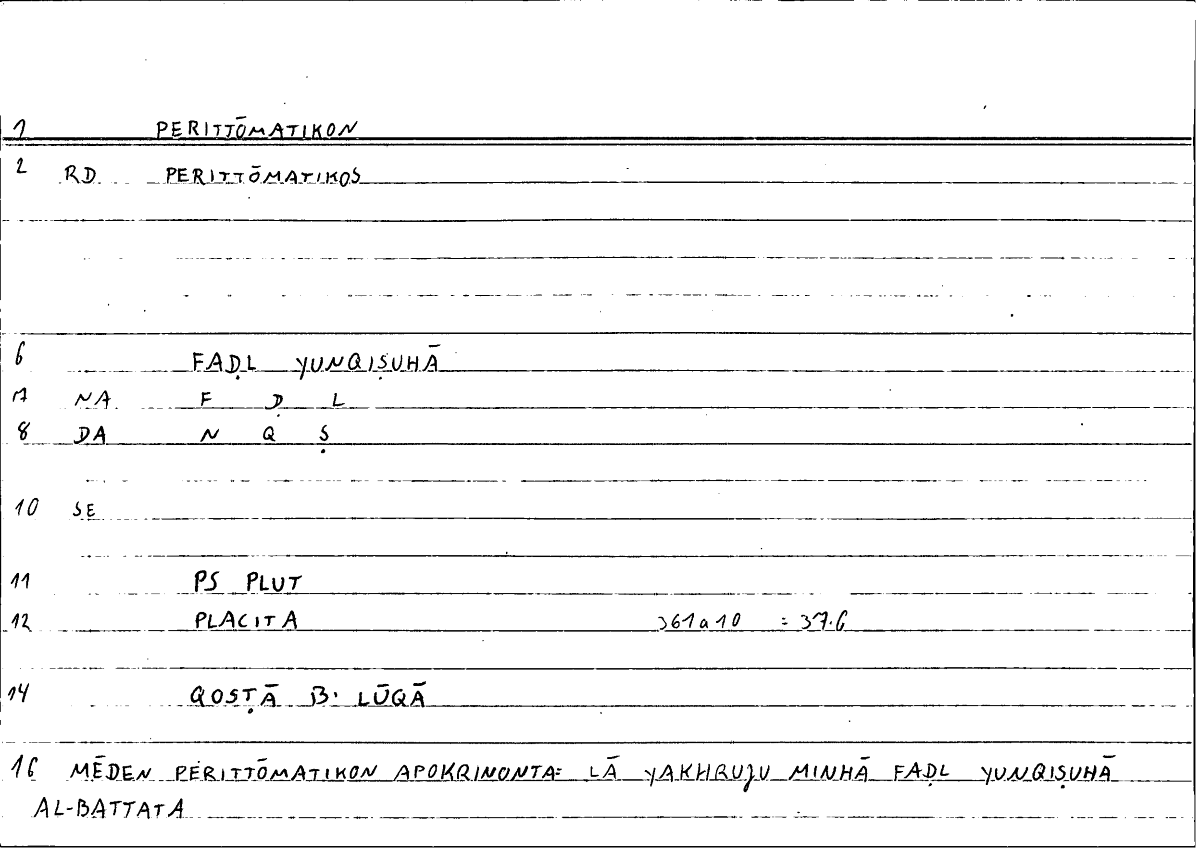 1 PERITTŌMATIKON
2 RD PERITTŌMATIKOS
6 FAḌL YUNQIṢUHĀ
7 NA F Ḍ L
8 DA N Q Ṣ
10 SE
11 PS PLUT
12 PLACITA 361a10 = 37.6
14 QOSṬĀ B. LŪQĀ
16 MĒDEN PERITTŌMATIKON APOKRINONTA: LĀ YAKHRUJU MINHĀ FAḌL YUNQIṢUHĀ
AL-BATTATA